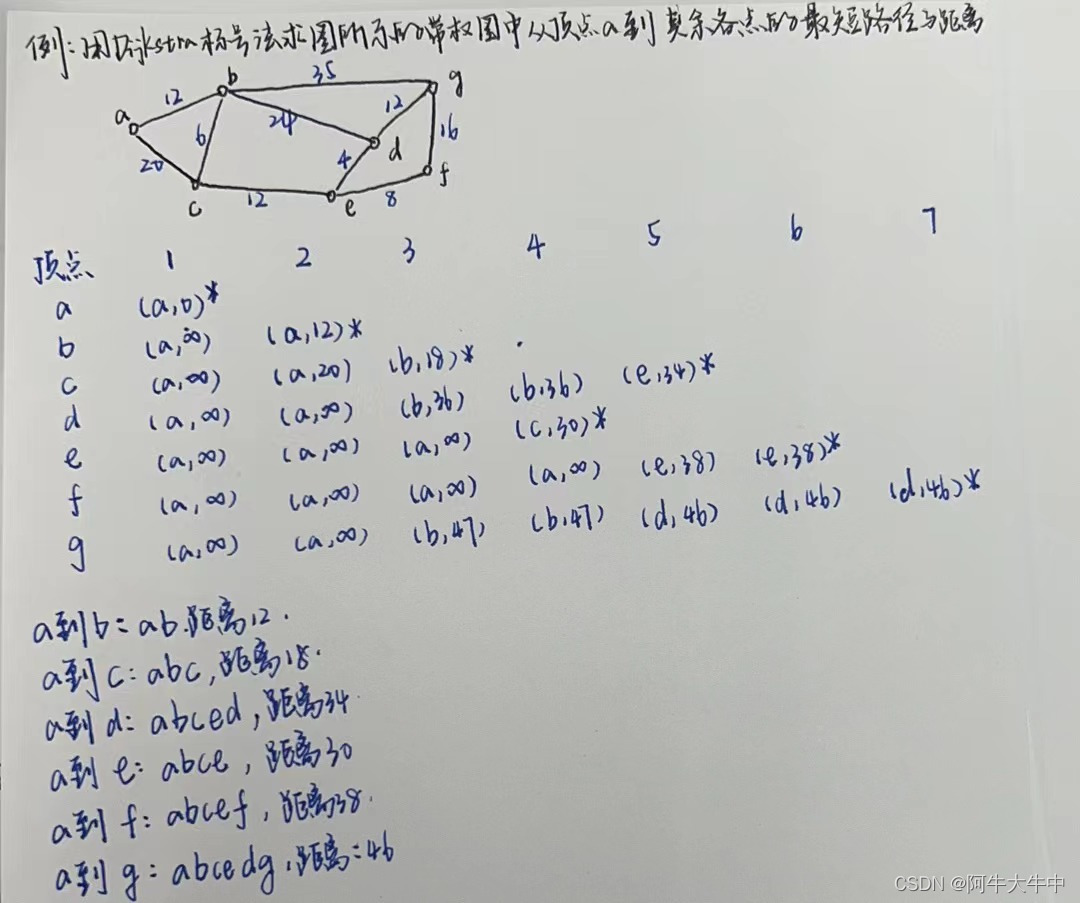 例:用Dijkstra标号法求图所示的带权图中从顶点a到其余各点的最短路径与距离
b 35 g
a 12 24 12
6 d 16
20 4 f
c 12 e 8
顶点 1 2 3 4 5 6 7
a (a,0)*
b (a,∞) (a,12)*
c (a,∞) (a,20) (b,18)*
d (a,∞) (a,∞) (b,36) (b,36) (e,34)*
e (a,∞) (a,∞) (a,∞) (c,30)*
f (a,∞) (a,∞) (a,∞) (a,∞) (e,38) (e,38)*
g (a,∞) (a,∞) (b,47) (b,47) (d,46) (d,46) (d,46)*
a到b:ab.距离12.
a到c:abc,距离18.
a到d:abced,距离34
a到e:abce,距离30
a到f:abcef,距离38.
a到g:abcedg,距离:46
CSDN @阿牛大牛中